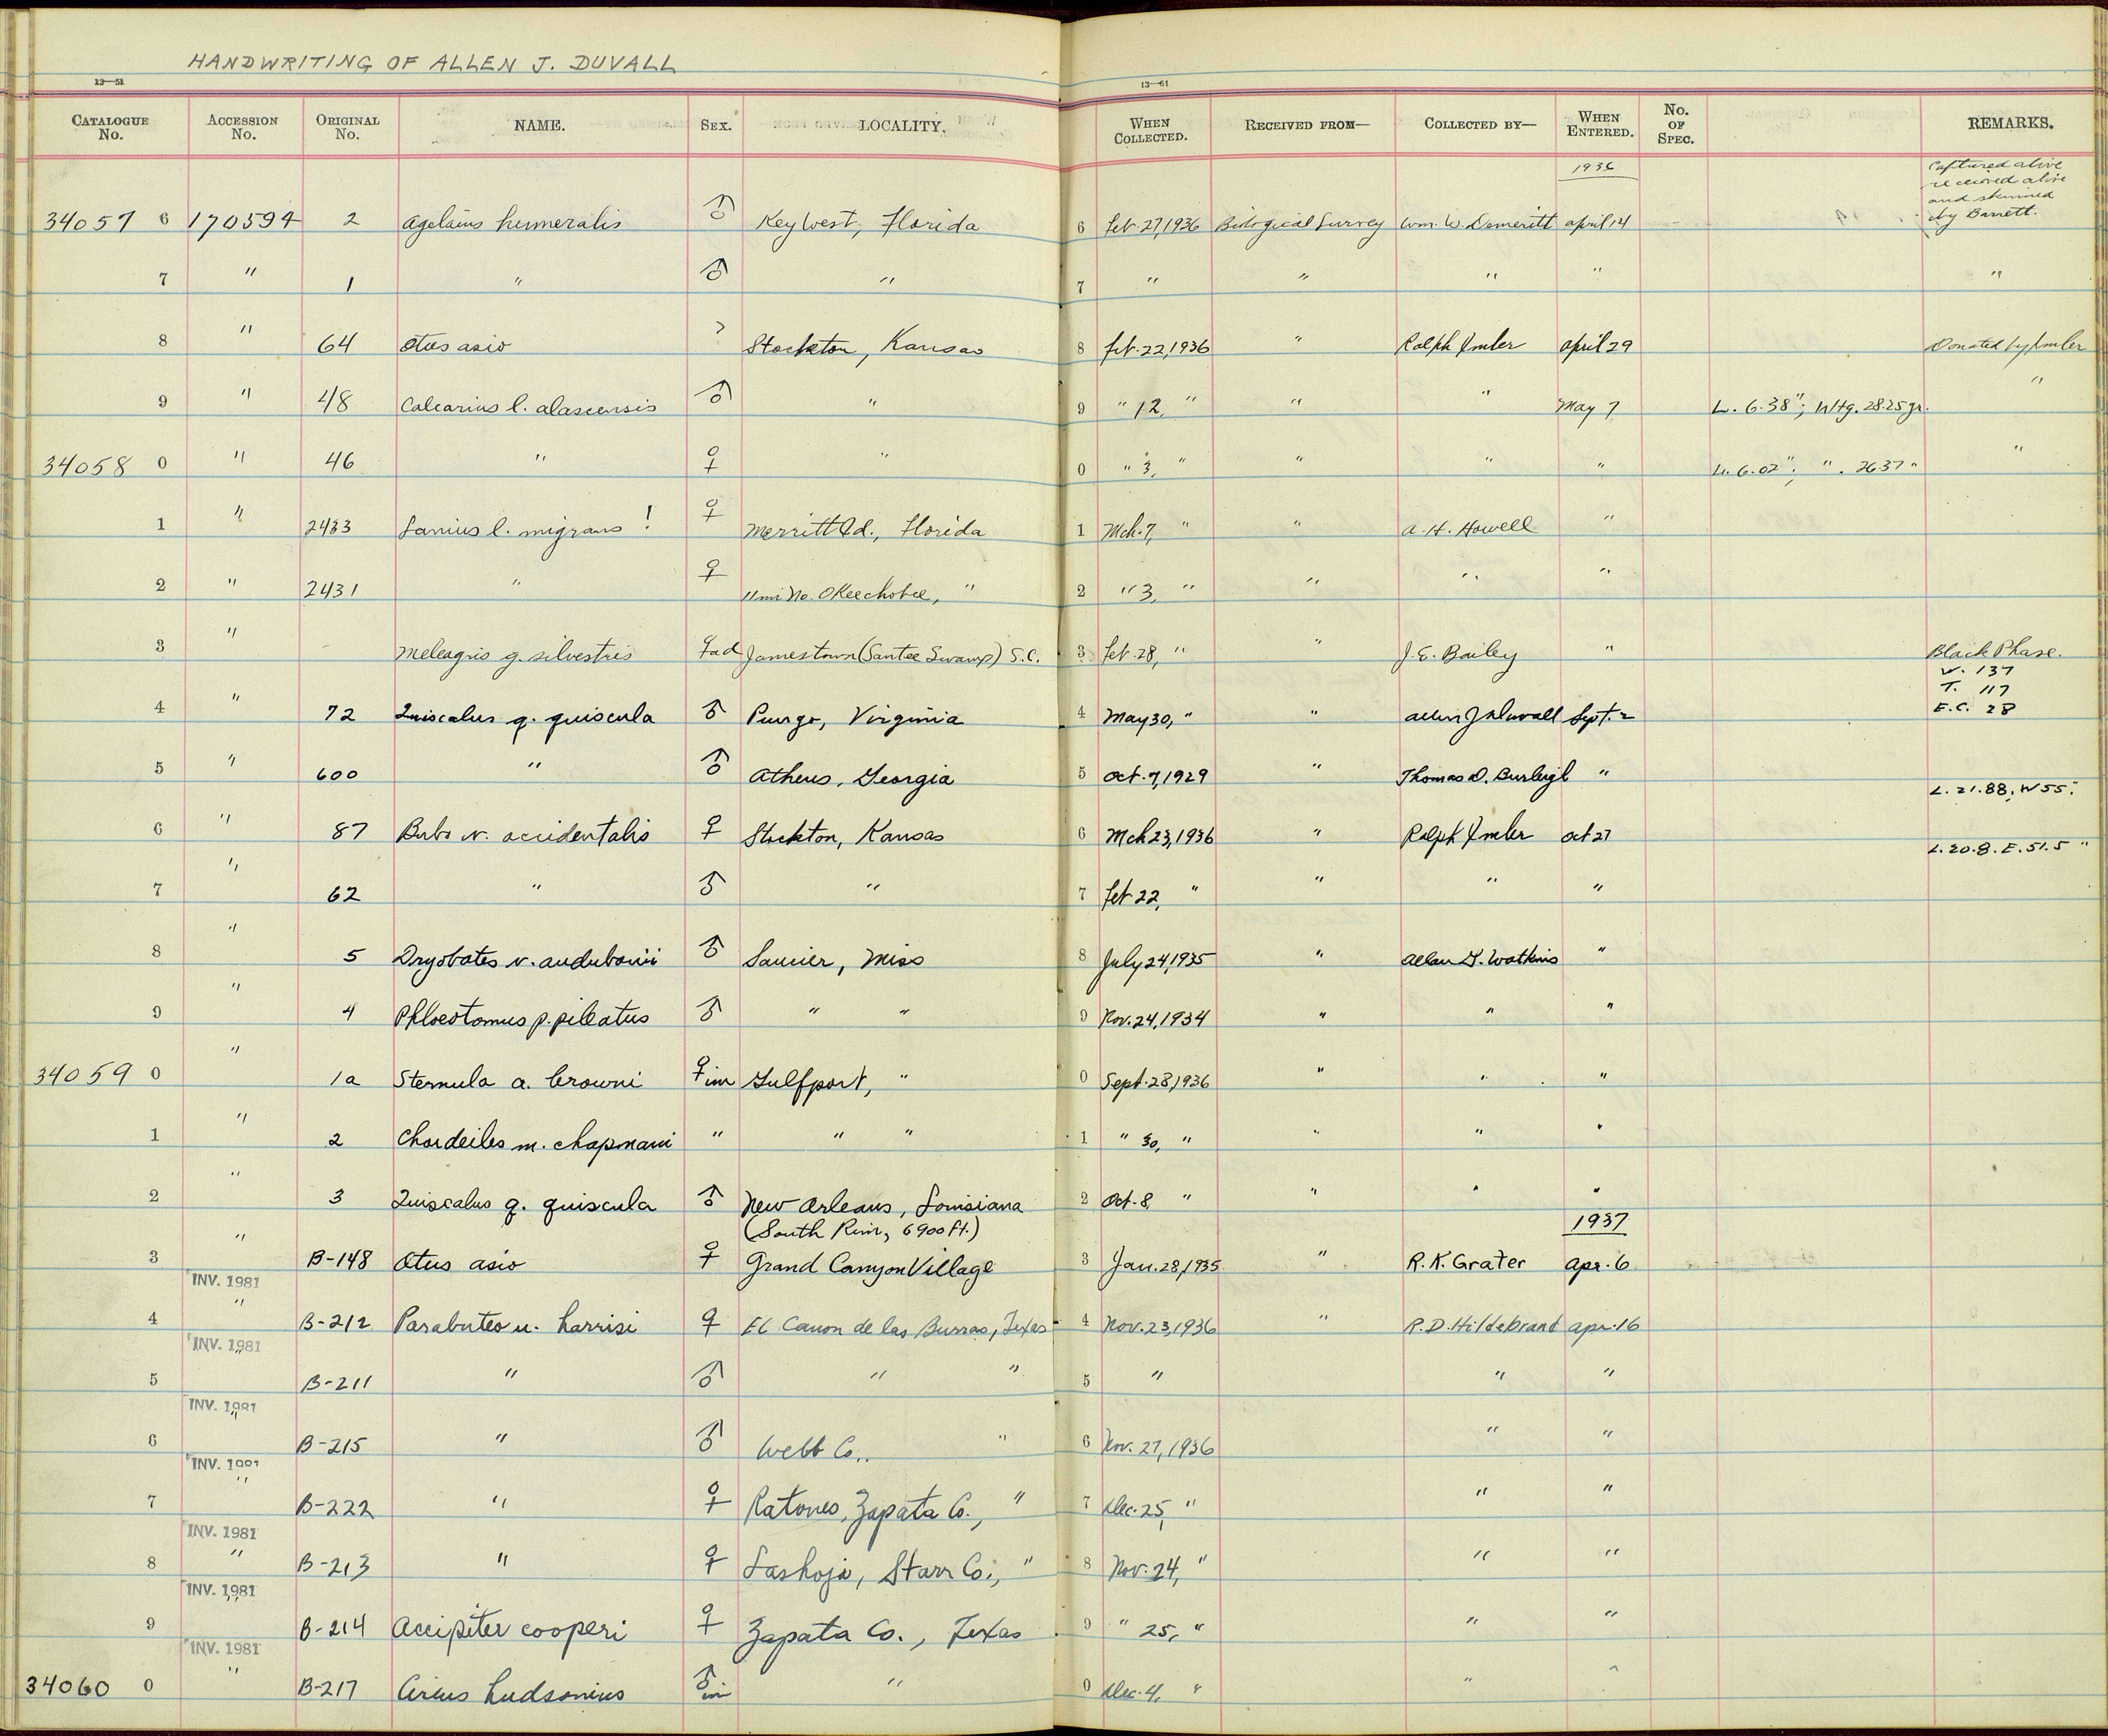 HANDWRITING OF ALLEN J. DUVALL
13—51 13—61
CATALOGUE No. ACCESSION No. ORIGINAL No. NAME. SEX. LOCALITY. WHEN COLLECTED. RECEIVED FROM— COLLECTED BY— WHEN ENTERED. No. OF SPEC. REMARKS.
1936 Captured alive
received alive
and skinned
34057 6 170594 2 Agelaius humeralis ♂ Key West, Florida 6 Feb. 27, 1936 Biological Survey Wm. W. Demeritt april 14 by Barrett.
7 " 1 " ♂ " 7 " " " " "
8 " 64 Otus asio ? Stockton, Kansas 8 feb. 22, 1936 " Ralph Imler april 29 Donated by Imler
9 " 48 Calcarius l. alascensis ♂ " 9 " 12, " " " May 7 L. 6.38"; Wtg. 28.25 gr. "
34058 0 " 46 " ♀ " 0 " 3, " " " " L. 6.02"; ". 26.37 " "
1 " 2433 Lanius l. migrans ! ♀ Merritt Id., Florida 1 Mch. 7, " " A. H. Howell "
2 " 2431 " ♀ 11 mi No. Okeechobee, " 2 " 3, " " " "
3 " - Meleagris g. silvestris ♀ad Jamestown (Santee Swamp) S.C. 3 Feb. 28, " " J. E. Bailey " Black Phase.
W. 137
T. 117
4 " 72 Quiscalus q. quiscula ♂ Pungo, Virginia 4 May 30, " " Allen J. Duvall Sept. 2 E.C. 28
5 " 600 " ♂ Athens, Georgia 5 Oct. 7, 1929 " Thomas D. Burleigh "
L. 21.88; W 55."
6 " 87 Bubo v. occidentalis ♀ Stockton, Kansas 6 Mch 23, 1936 " Ralph Imler oct 27
L. 20.8. E. 51.5 "
7 " 62 " ♂ " 7 feb. 22, " " " "
8 " 5 Dryobates v. audubonii ♂ Saucier, Miss 8 July 24, 1935 " Allan D. Watkins "
9 " 4 Phloeotomus p. pileatus ♂ " " 9 Nov. 24, 1934 " " "
34059 0 " 1a Sternula a. browni ♀im Gulfport, " 0 Sept. 28, 1936 " " "
1 " 2 Chordeiles m. chapmani " " " 1 " 30, " " " "
2 " 3 Quiscalus q. quiscula ♂ New Orleans, Louisiana 2 Oct. 8, " " " "
(South Rim, 6900 ft.) 1937
3 " B-148 Otus asio ♀ Grand Canyon Village 3 Jan. 28, 1935 " R. K. Grater apr. 6
INV. 1981
4 " B-212 Parabuteo u. harrisi ♀ El Canon de las Burras, Texas 4 Nov. 23, 1936 " R. D. Hildebrand apr. 16
INV. 1981
5 " B-211 " ♂ " " 5 " " "
INV. 1981
6 B-215 " ♂ Webb Co., " 6 Nov. 27, 1936 " "
INV. 1981
7 " B-222 " ♀ Ratones, Zapata Co., " 7 Dec. 25, " " "
INV. 1981
8 " B-213 " ♀ Starr Co., " 8 Nov. 24, " " "
INV. 1981
9 " B-214 Accipiter cooperi ♀ Zapata Co., Texas 9 " 25, " " "
INV. 1981
34060 0 " B-217 Circus hudsonius ♂im " 0 Dec. 4, " " "